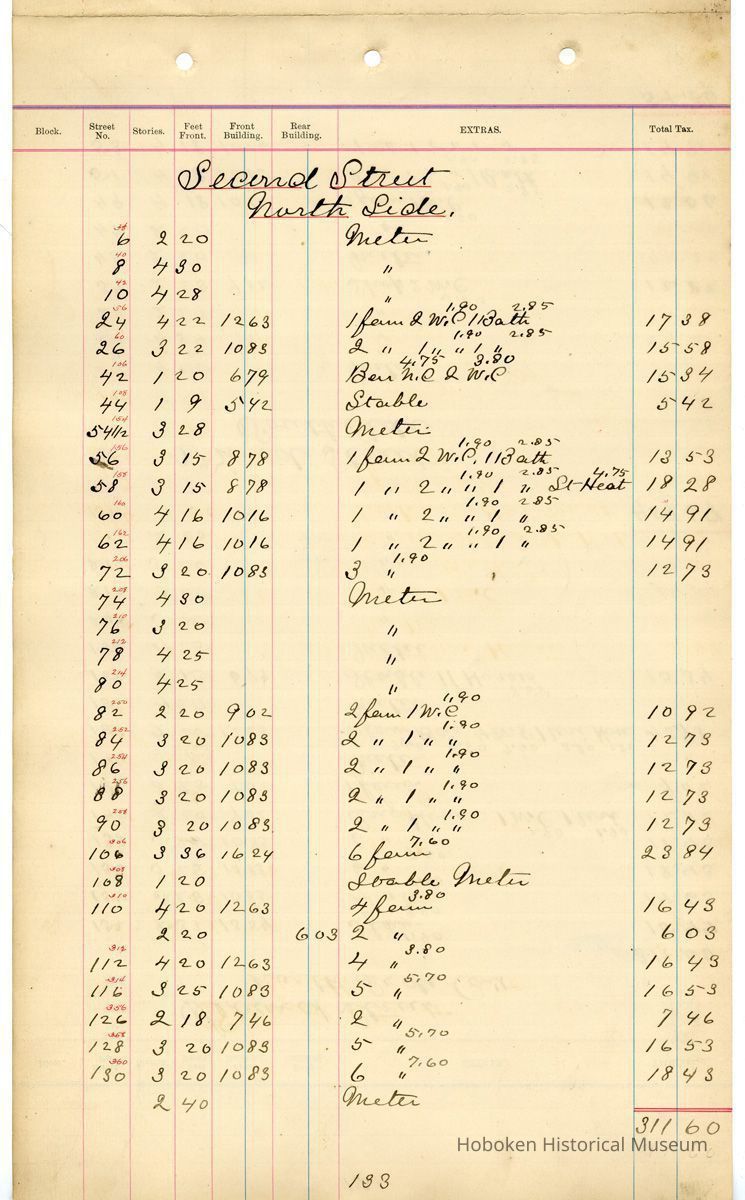 Block. Street No. Stories. Feet Front. Front Building. Rear Building. EXTRAS. Total Tax.
Second Street
North Side.
38 6 2 20 Meter
40 8 4 30 "
42 10 4 28 "
56 24 4 22 12 63 1 fam 2 W.C 1.90 1 Bath 2.85 17 38
60 26 3 22 10 83 2 " 1 " 1.90 " 1 " 2.85 15 58
106 42 1 20 6 79 Bar 4.75 N.C 2 W.C 3.80 15 34
108 44 1 9 5 42 Stable 5 42
154 54 1/2 3 28 Meter
156 56 3 15 8 78 1 fam 2 W.C. 1.90 1 Bath 2.85 13 53
158 58 3 15 8 78 1 " 2 " " 1.90 1 " 2.85 St Heat 4.75 18 28
160 60 4 16 10 16 1 " 2 " " 1.90 1 " 2.85 14 91
162 62 4 16 10 16 1 " 2 " " 1.90 1 " 2.85 14 91
206 72 3 20 10 83 3 " 1.90 12 73
208 74 4 30 Meter
210 76 3 20 "
212 78 4 25 "
214 80 4 25 "
250 82 2 20 9 02 2 fam 1 W.C 1.90 10 92
252 84 3 20 10 83 2 " 1 " " 1.90 12 73
254 86 3 20 10 83 2 " 1 " " 1.90 12 73
256 88 3 20 10 83 2 " 1 " " 1.90 12 73
258 90 3 20 10 83 2 " 1 " " 1.90 12 73
306 106 3 36 16 24 6 fam 7.60 23 84
308 108 1 20 Stable Meter
310 110 4 20 12 63 4 fam 3.80 16 43
2 20 6 03 2 " 6 03
312 112 4 20 12 63 4 " 3.80 16 43
314 116 3 25 10 83 5 " 5.70 16 53
356 126 2 18 7 46 2 " 7 46
358 128 3 20 10 83 5 " 5.70 16 53
360 130 3 20 10 83 6 " 7.60 18 43
2 40 Meter
311 60
Hoboken Historical Museum
133